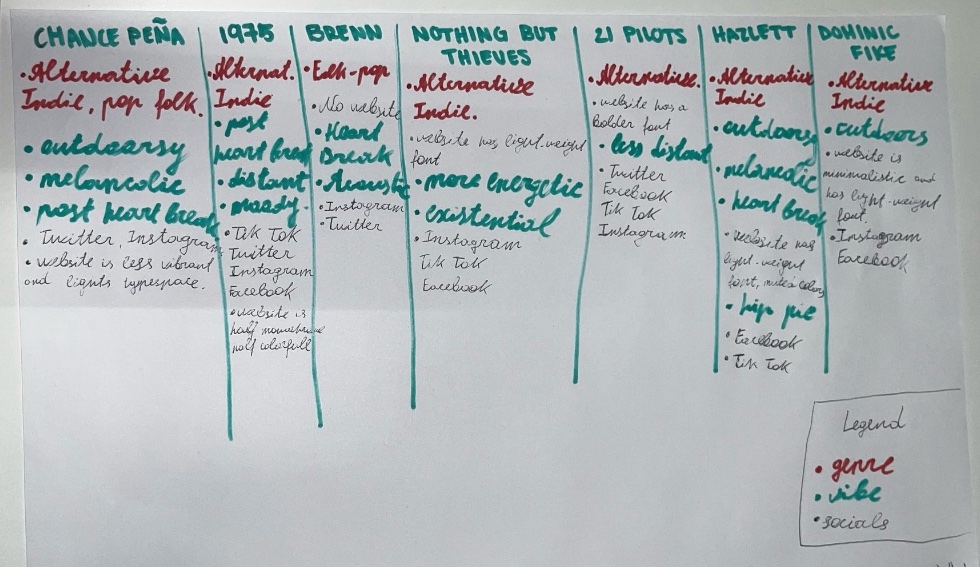 CHANCE PEÑA
•Alternative
Indie, pop folk.
• outdoorsy
• melancolic
• post heart break
• Twitter, Instagram
• website is less vibrant
and lights typespace.
1975
•Alternat.
Indie
• post
heart break
•distant
•moody
•Tik Tok
Twitter
Instagram
Facebook
•website is
half monochrome
half colorfull
BRENN
•Folk-pop
•No website
•Heart
Break
•Acoustic
•Instagram
•Twitter
NOTHING BUT
THIEVES
•Alternative
Indie.
•website has light-weight
font
•more energetic
•existential
•Instagram
Tik Tok
Facebook
21 PILOTS
•Alternative.
•website has a
Bolder font
•less distant
•Twitter
Facebook
Tik Tok
Instagram
HAZLETT
•Alternative
Indie
•outdoorsy
•melancolic
• heart break
•website has
light-weight
font, muted colors
•hip pie
•Facebook
•Tik Tok
DOMINIC
FIKE
•Alternative
Indie
•outdoors
•website is
minimalistic and
has light-weight
font
•Instagram
Facebook
Legend
• genre
• vibe
•socials